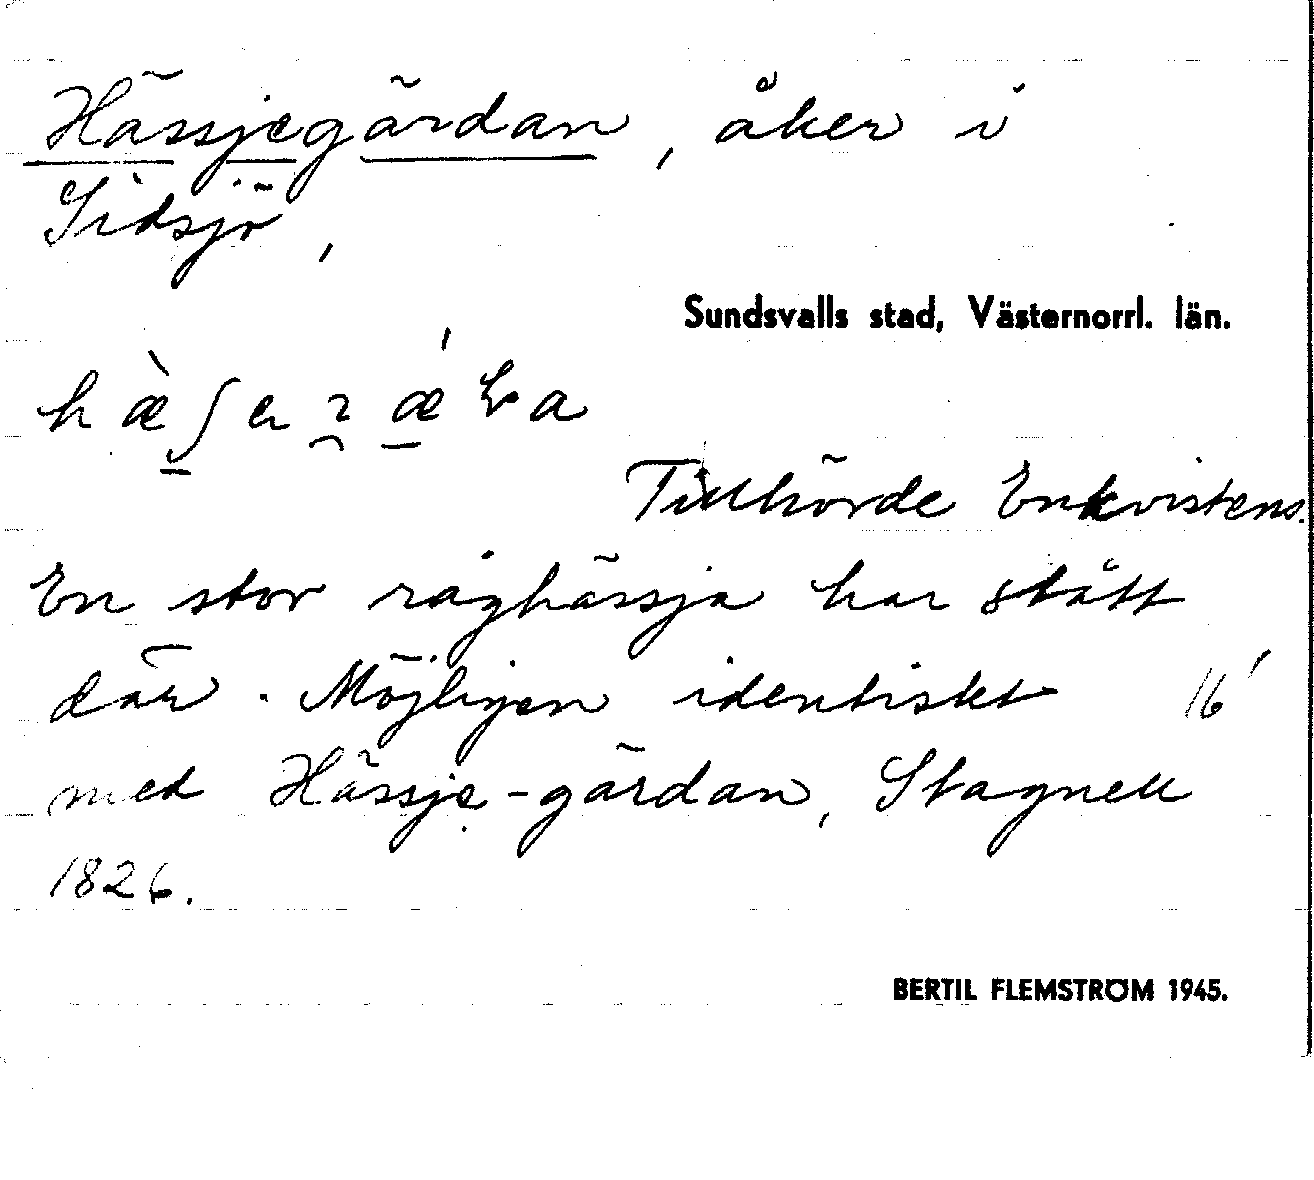 Hässjegärdan, åker i
Sidsjö,
Sundsvalls stad, Västernorrl. län.
Tillhörde Enkvistens.
En stor råghässja har stått
där. Möjligen identiskt 16'
med Hässje-gärdan, Stagnell
1826.
BERTIL FLEMSTRÖM 1945.